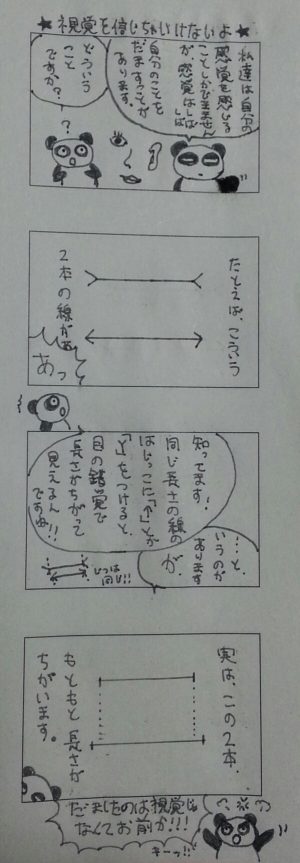 ★視覚を信じちゃいけないよ★
私達は、自分の
感覚を感じる
ことしかできません
が、感覚はしばしば
自分のことを
だますことが
あります。
どういう
こと
ですか?
?
?
たとえば、こういう
2本の線が
あっ
…と、
いうのが
あります
が、
知ってます!
同じ長さの線の
はじっこに「个」とか
「丫」をつけると、
目の錯覚で
長さがちがって
見えるん!!
ですね
じつは
同じ!!
実は、この2本、
もともと長さが
ちがいます。
だましたのは視覚じゃ
なくてお前か!!!
キーッ!!